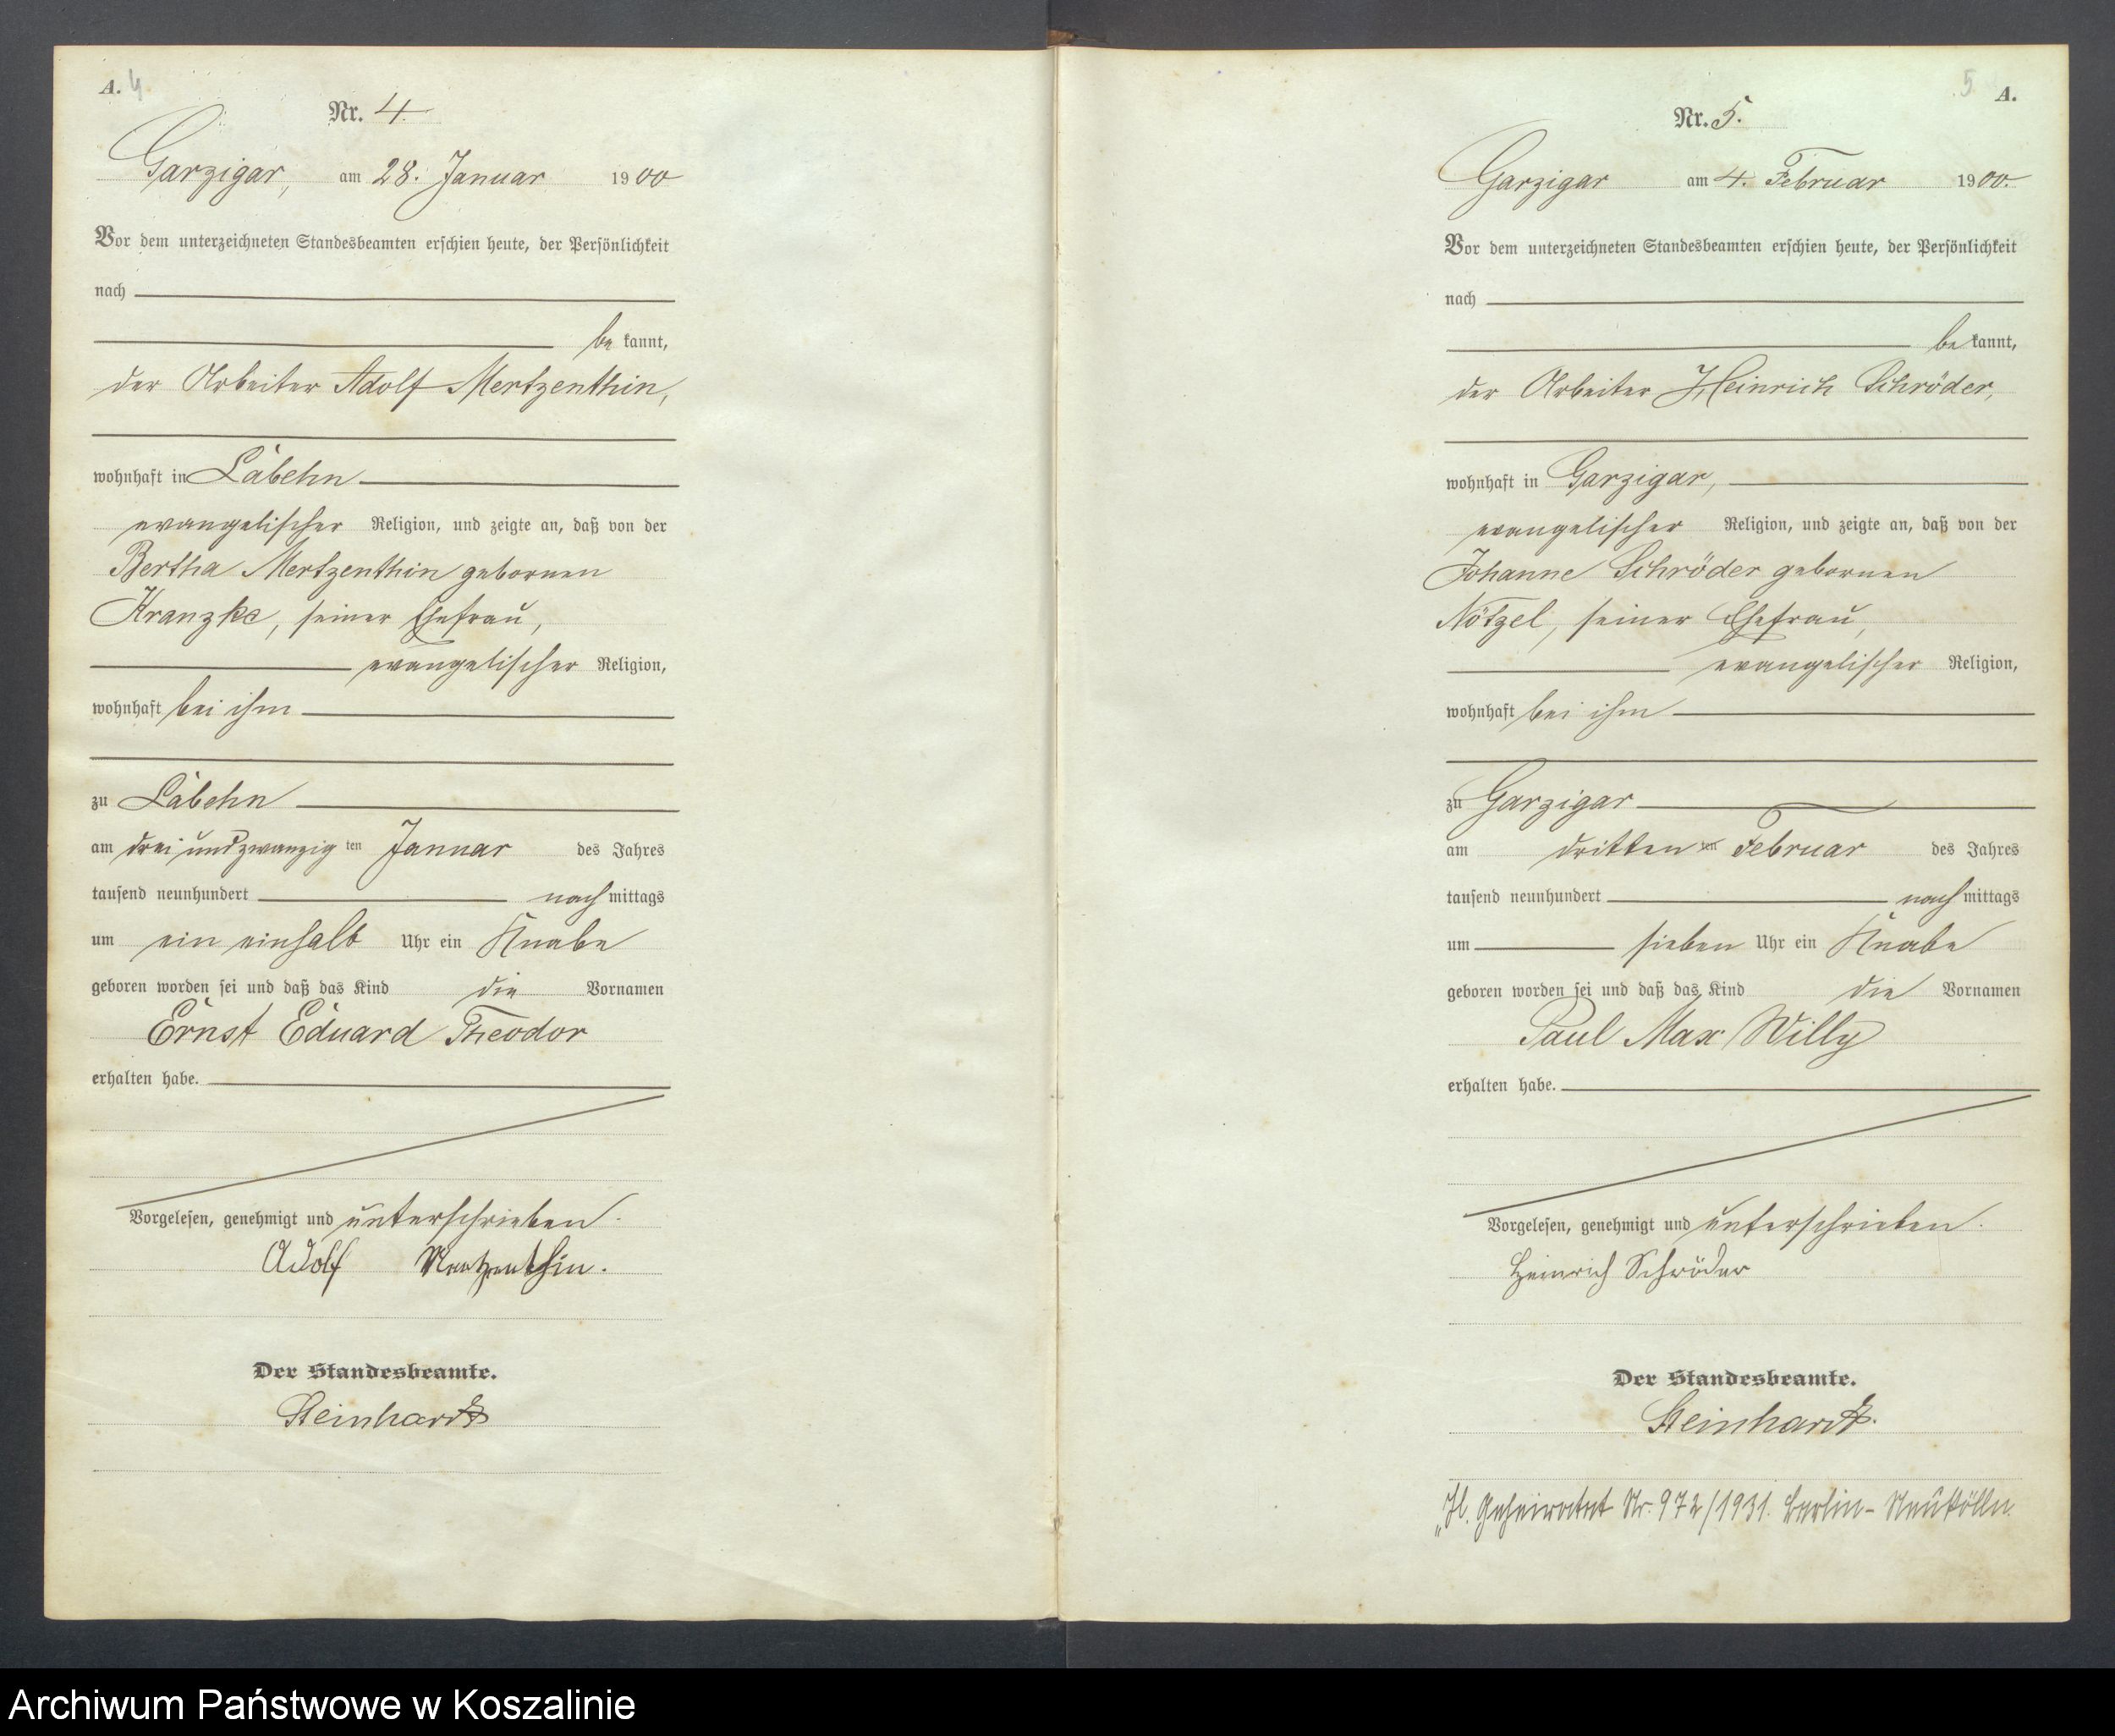 A. 4
Nr. 4.
Garzigar, am 28. Januar 1900
Vor dem unterzeichneten Standesbeamten erschien heute, der Persönlichkeit
nach
be kannt,
der Arbeiter Adolf Mertzenthin,
wohnhaft in Labehn
evangelischer Religion, und zeigte an, daß von der
Bertha Mertzenthin gebornen
Kranzke, seiner Ehefrau,
evangelischer Religion,
wohnhaft bei ihm
zu Labehn
am drei und zwanzig ten Januar des Jahres
tausend neunhundert nach mittags
um ein einhalb Uhr ein Knabe
geboren worden sei und daß das Kind die Vornamen
Ernst Eduard Theodor
erhalten habe.
Vorgelesen, genehmigt und unterschrieben.
Adolf Mertzenthin.
Der Standesbeamte.
Steinhardt
5 A.
Nr. 5.
Garzigar am 4. Februar 1900.
Vor dem unterzeichneten Standesbeamten erschien heute, der Persönlichkeit
nach
be kannt,
der Arbeiter Heinrich Schröder,
wohnhaft in Garzigar,
evangelischer Religion, und zeigte an, daß von der
Johanne Schröder gebornen
Nötzel, seiner Ehefrau,
evangelischer Religion,
wohnhaft bei ihm
zu Garzigar
am dritten ten Februar des Jahres
tausend neunhundert nach mittags
um sieben Uhr ein Knabe
geboren worden sei und daß das Kind die Vornamen
Paul Max Willy
erhalten habe.
Vorgelesen, genehmigt und unterschrieben.
Heinrich Schröder
Der Standesbeamte.
Steinhardt.
Geheiratet Nr. 972/1931. Berlin-Neukölln.
Archiwum Państwowe w Koszalinie